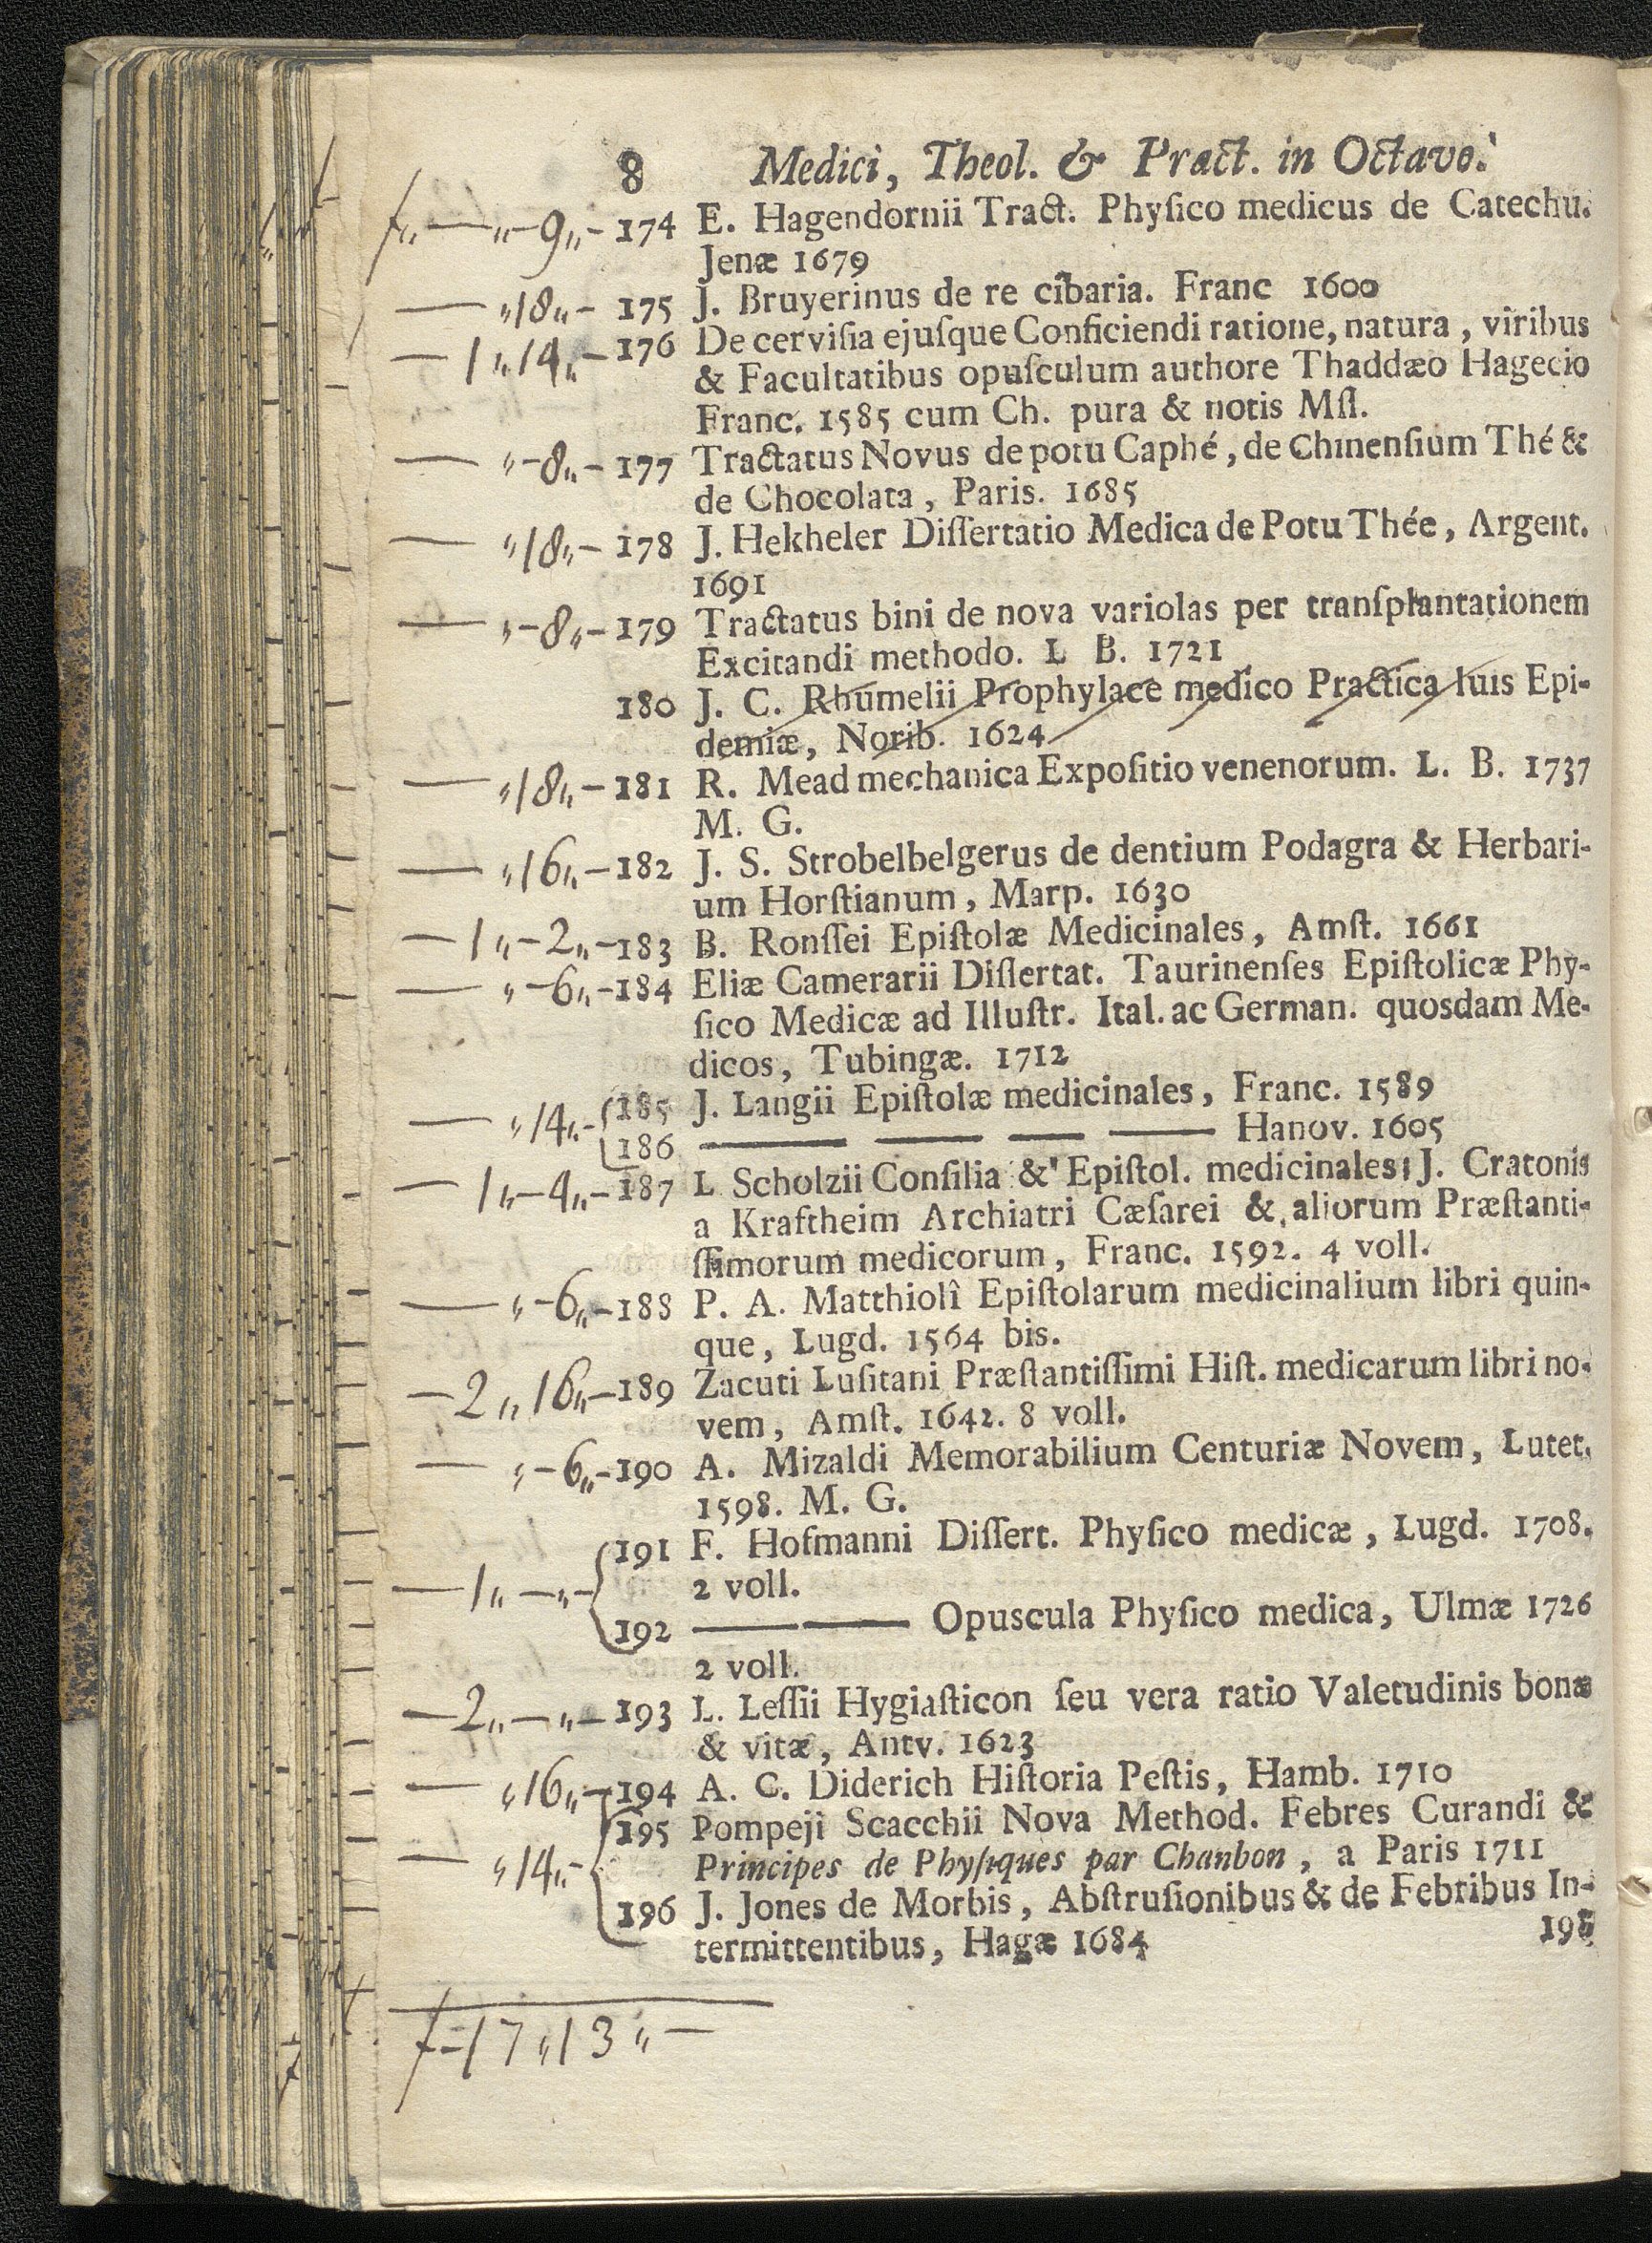 8 Medici, Theol. & Pract. in Octavo.
f„ — „ - 9„ - 174 E. Hagendornii Tract. Phyſico medicus de Catechu.
Jenæ 1679
— „18„ - 175 J. Bruyerinus de re cibaria. Franc 1600
— 1„14„ - 176 De cerviſia ejuſque Conficiendi ratione, natura, viribus
& Facultatibus opuſculum authore Thaddæo Hagecio
Franc. 1585 cum Ch. pura & notis Mſſ.
— „-8„ - 177 Tractatus Novus de potu Caphé, de Chinenſium Thé &
de Chocolata, Paris. 1685
— „18„ - 178 J. Hekheler Diſſertatio Medica de Potu Thée, Argent.
1691
— „-8„ - 179 Tractatus bini de nova variolas per tranſplantationem
Excitandi methodo. L B. 1721
180 J. C. Rhumelii Prophylace medico Practica luis Epi-
demiæ, Norib. 1624
— „18„ - 181 R. Mead mechanica Expoſitio venenorum. L. B. 1737
M. G.
— „16„ - 182 J. S. Strobelbelgerus de dentium Podagra & Herbari-
um Horſtianum, Marp. 1630
— 1„-2„ - 183 B. Ronſſei Epiſtolæ Medicinales, Amſt. 1661
— „-6„ - 184 Eliæ Camerarii Diſſertat. Taurinenſes Epiſtolicæ Phy-
ſico Medicæ ad Illuſtr. Ital. ac German. quosdam Me-
dicos, Tubingæ. 1712
— „14„ - { 185 J. Langii Epiſtolæ medicinales, Franc. 1589
186 — — — — Hanov. 1605
— 1„-4„ - 187 L Scholzii Conſilia & Epiſtol. medicinales; J. Cratonis
a Kraftheim Archiatri Cæſarei & aliorum Præſtanti-
ſſimorum medicorum, Franc. 1592. 4 voll.
— „-6„ - 188 P. A. Matthiolî Epiſtolarum medicinalium libri quin-
que, Lugd. 1564 bis.
— 2„16„ - 189 Zacuti Luſitani Præſtantiſſimi Hiſt. medicarum libri no-
vem, Amſt. 1642. 8 voll.
— „-6„ - 190 A. Mizaldi Memorabilium Centuriæ Novem, Lutet.
1598. M. G.
191 F. Hofmanni Diſſert. Phyſico medicæ, Lugd. 1708.
— 1„ — „ - { 2 voll.
192 — — Opuscula Phyſico medica, Ulmæ 1726
2 voll.
— 2„ — „ - 193 L. Leſſii Hygiaſticon ſeu vera ratio Valetudinis bonæ
& vitæ, Antv. 1623
— „16„ - 194 A. C. Diderich Hiſtoria Peſtis, Hamb. 1710
195 Pompeji Scacchii Nova Method. Febres Curandi &
— „14„ - { Principes de Phyſiques par Chanbon, a Paris 1711
196 J. Jones de Morbis, Abſtruſionibus & de Febribus In-
termittentibus, Hagæ 1684
f - 17„13„ —